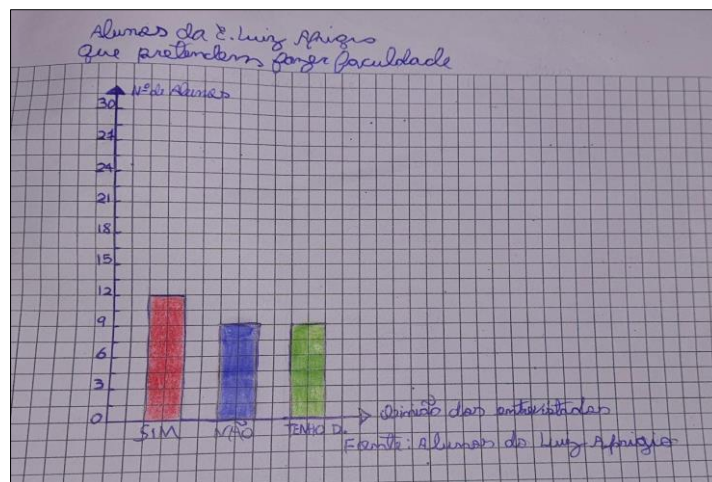 Alunos da E. Luiz Aprigio
que pretendem fazer faculdade
Nº de Alunos
30
27
24
21
18
15
12
9
6
3
0
SIM NÃO TENHO D.
Opinião dos entrevistados
Fonte: Alunos do Luiz Aprigio